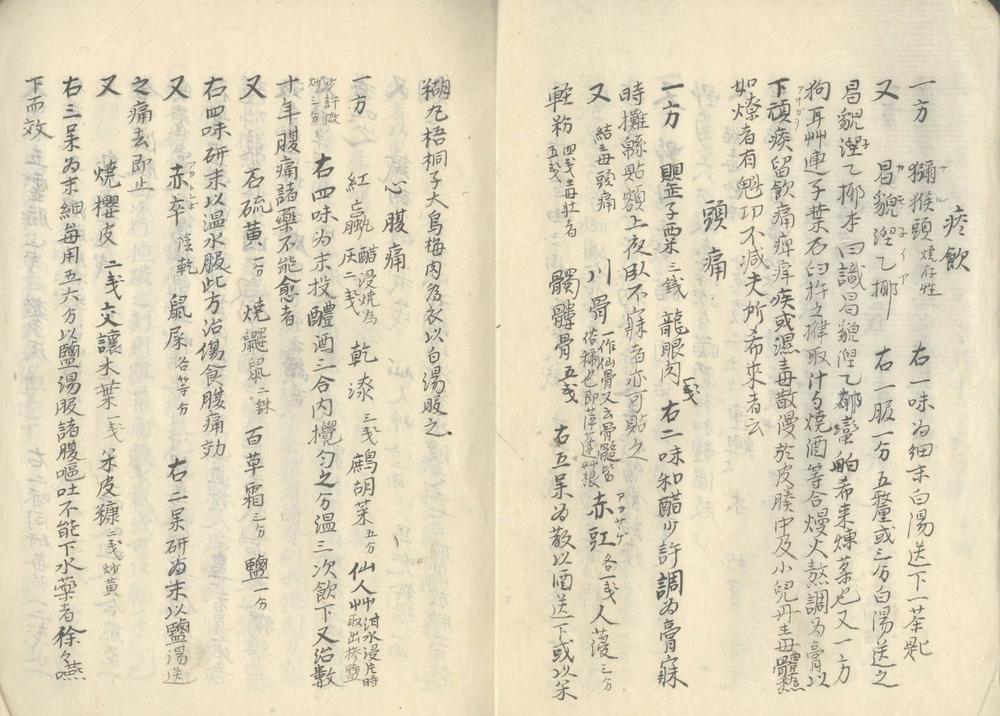 痰飲
一方　獼猴頭 燒存性　右一味為細末白湯送下一茶匙
又　昌貎涅乙梛　右一服一分五釐或三分白湯送之
昌貎涅乙梛本曰識昌貎涅乙鄀蠻舶希来煉菓也又一方
狗耳艸連子葉石臼杵之搾取汁勺燒酒等合熳火熬調為膏以
下頑痰留飲痛痺痒疾或濕毒散漫於皮腠中及小兒丹毒
如燎者有魁功不減夫所希来者云
頭痛
一方　罌子粟 三錢 龍眼肉 一戔 右二味和醋少許調為膏寐
時攤緜貼額上夜臥不寐者亦可貼之
又 結毒頭痛 川骨 赤豇 各一戔 人薓 三分
輕粉 四戔毒壯者五戔 髑髏骨 五戔 右五呆為散以酒送下或以米
糊丸梧桐子大烏梅肉為衣以白湯服之
心腹痛
一方　紅 醋浸燒為灰二戔 乾漆 三戔 鷓胡菜 五分 仙人艸 泔水浸片時取出摻鹽
少許微炒三分 右四味為末投醴酒二合内攪勻之分温三次飲下又治數
十年腹痛諸藥不能愈者
又　石硫黄 一分 燒鼴鼠 二銖 百草霜 三分 鹽 一分
右四味研末以温水服此方治傷食腹痛効
又　赤卒 陰乾 鼠屎 各等分 右二呆研為末以鹽湯送
之痛去即止
又　燒櫻皮 二戔 交讓木葉 一戔 米皮糠 三戔炒黄
右三呆為末細每用五六分以鹽湯服諸腹嘔吐不能下水藥者徐々嚥
下而效